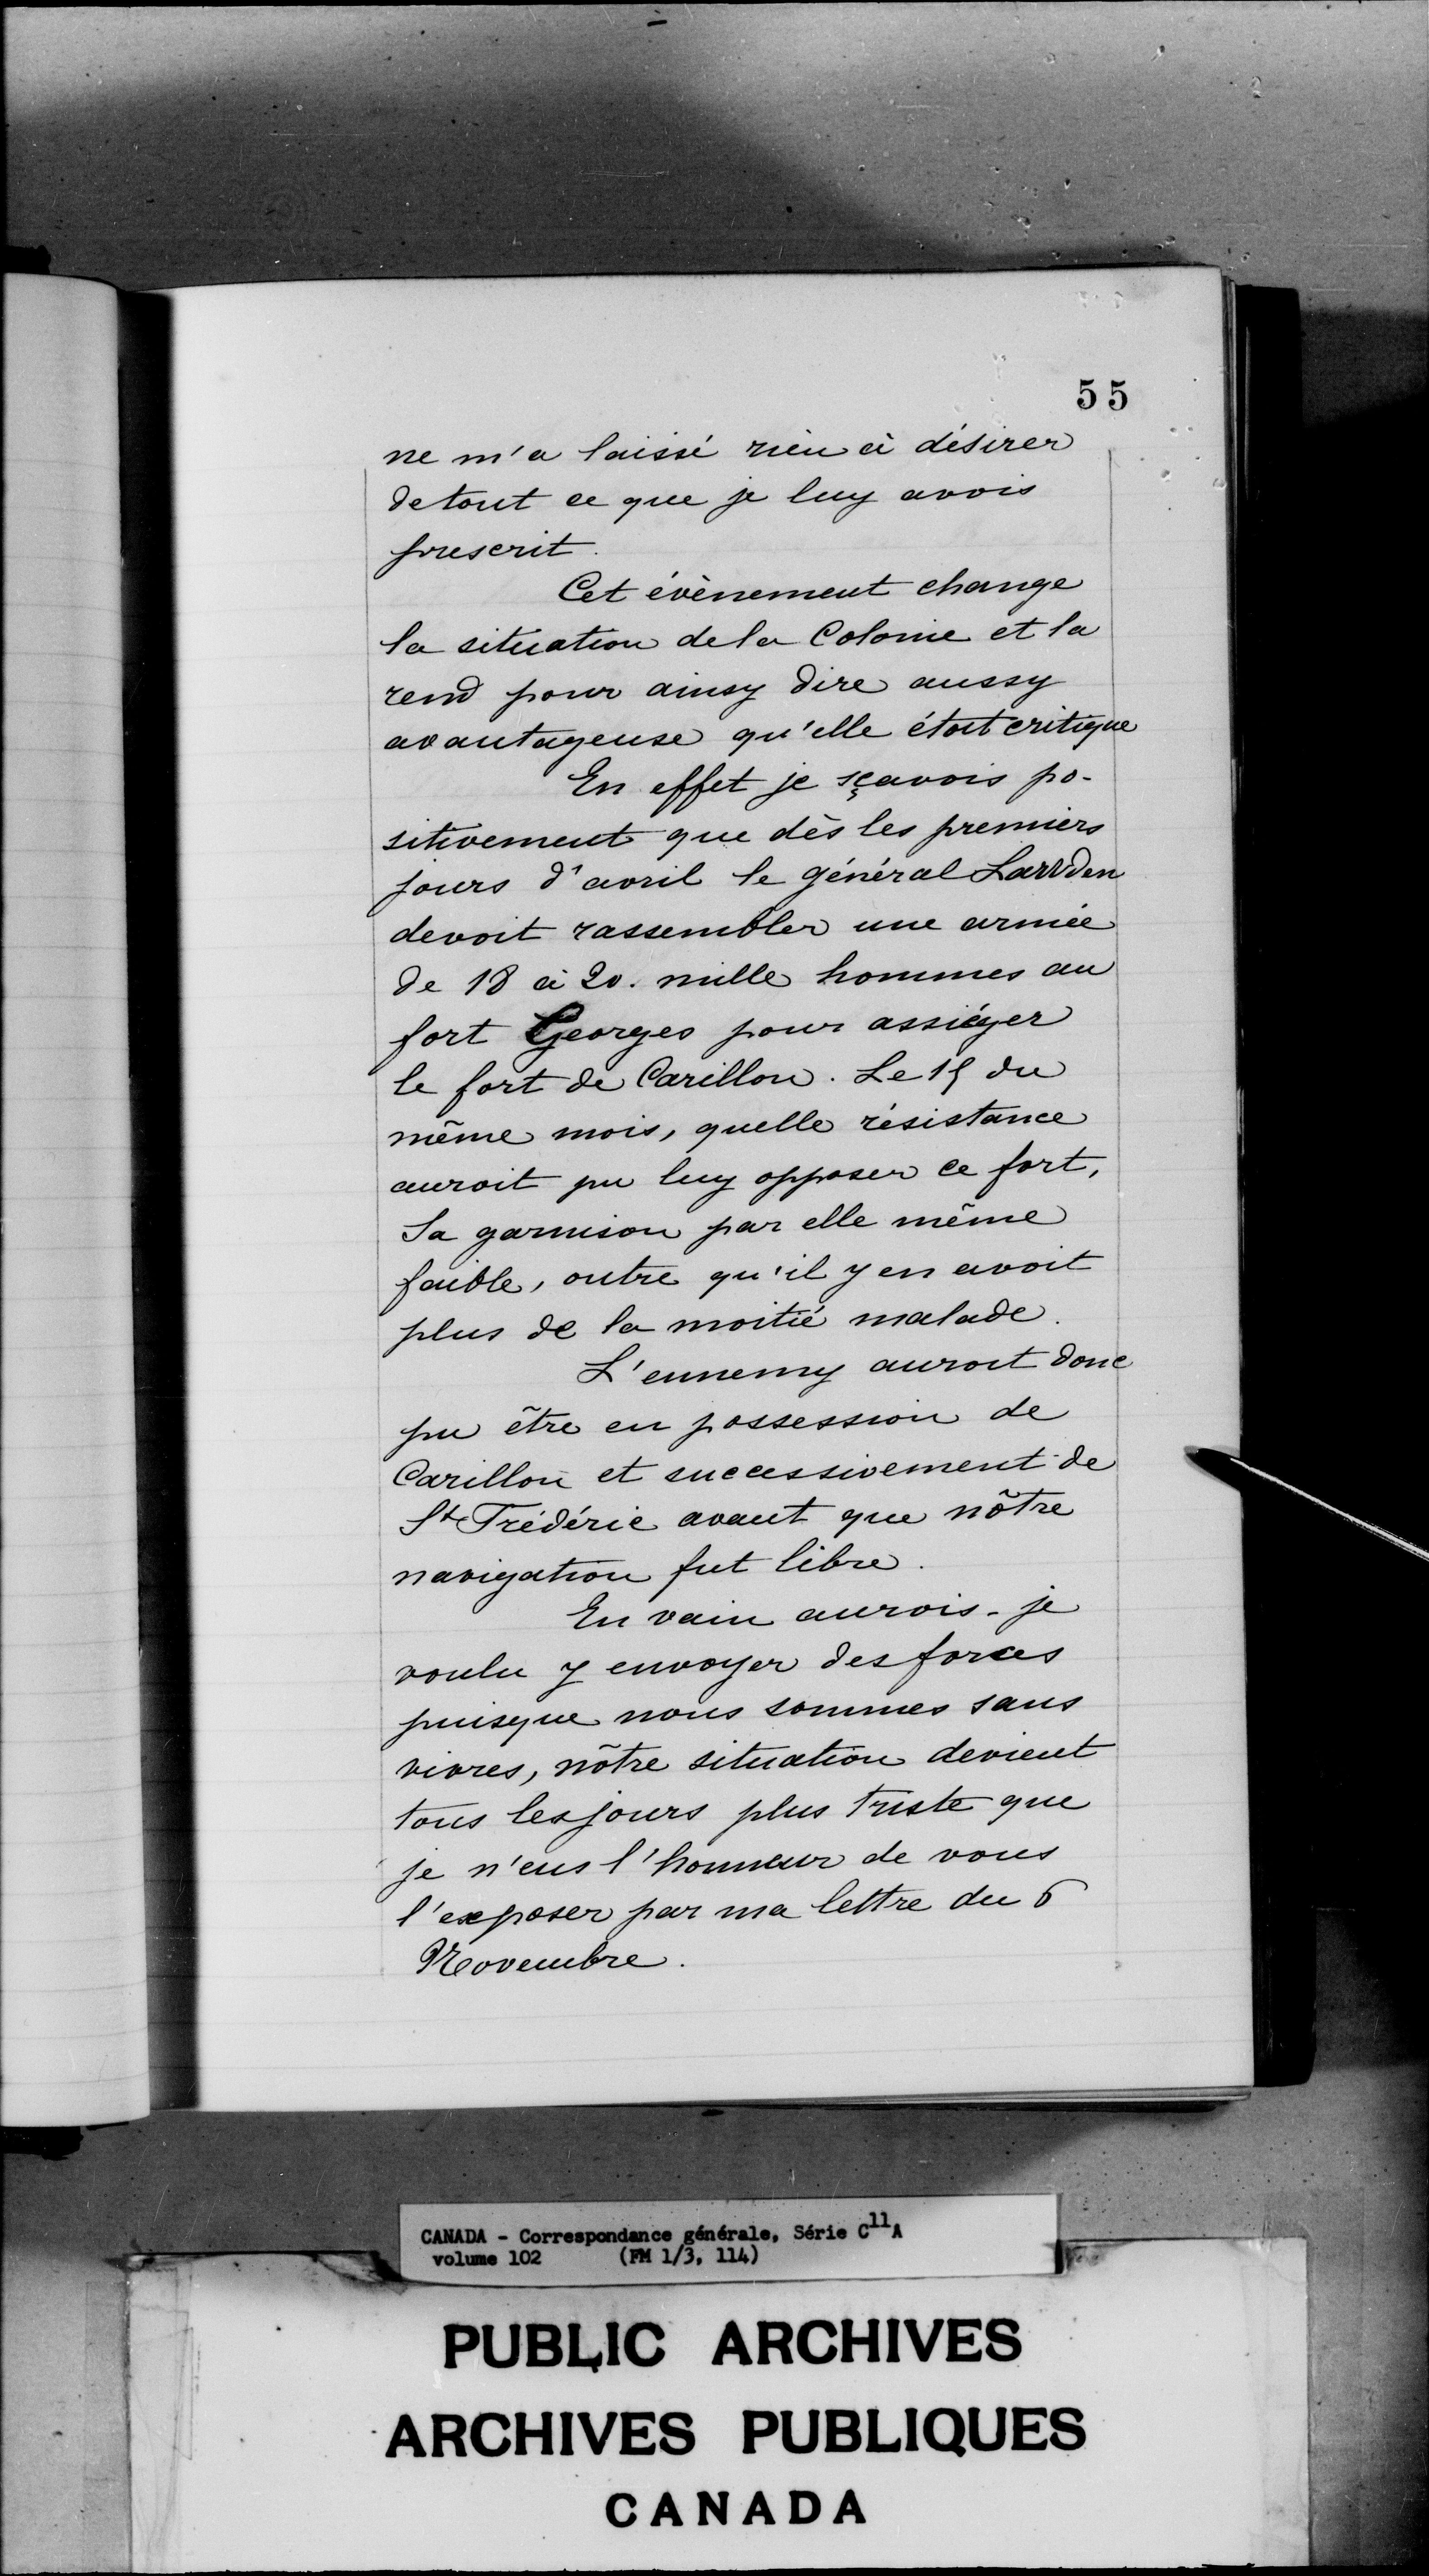 55
ne m'a laissé rien à désirer
de tout ce que je luy avois
prescrit.
Cet évènement change
la situation de la Colonie et la
rend pour ainsy dire aussy
avantageuse qu'elle étoit critique
En effet je sçavois po-
sitivement que dès les premiers
jours d'avril le général
devoit rassembler une armée
de 18 à 20. mille hommes au
fort Georges pour assiéger
le fort de Carillon. Le 15 du
même mois, quelle résistance
auroit pu luy opposer ce fort,
Sa garnison par elle même
faible, outre qu'il y en avoit
plus de la moitié malade.
L'ennemy auroit donc
pu être en possession de
Carillon et successivement de
St Frédéric avant que nôtre
navigation fut libre.
En vain aurois-je
voulu y envoyer des forces
puisque nous sommes sans
vivres, nôtre situation devient
tous les jours plus triste que
je n'eus l'honneur de vous
l'exposer par ma lettre du 6
Novembre.
CANADA - Correspondance générale, Série C11A
volume 102 (FM 1/3, 114)
PUBLIC ARCHIVES
ARCHIVES PUBLIQUES
CANADA